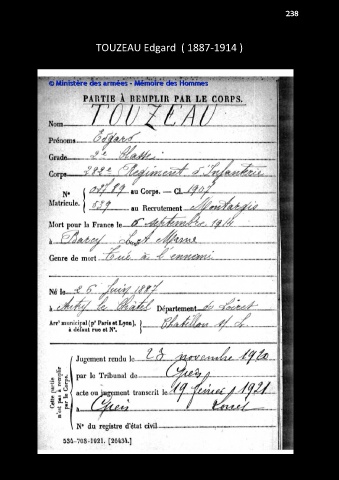 238
TOUZEAU Edgard ( 1887-1914 )
© Ministère des armées - Mémoire des Hommes
PARTIE À REMPLIR PAR LE CORPS.
Nom TOUZEAU
Prénoms Edgard
Grade 2e Classe
Corps 282e Régiment d'Infanterie
N° 04789 au Corps. — Cl. 1907
Matricule. 539 au Recrutement Montargis
Mort pour la France le 6 septembre 1914
à Barcy Set Marne
Genre de mort Tué à l'ennemi
Né le 26 juin 1887
à Autry le Châtel Département du Loiret
Arr' municipal (p' Paris et Lyon), à défaut rue et N°. Chatillon s/ L
Cette partie n'est pas à remplir par le Corps.
Jugement rendu le 23 novembre 1920
par le Tribunal de Gien
acte ou jugement transcrit le 19 février 1921
à Loiret
N° du registre d'état civil
534-708-1921. [26434.]